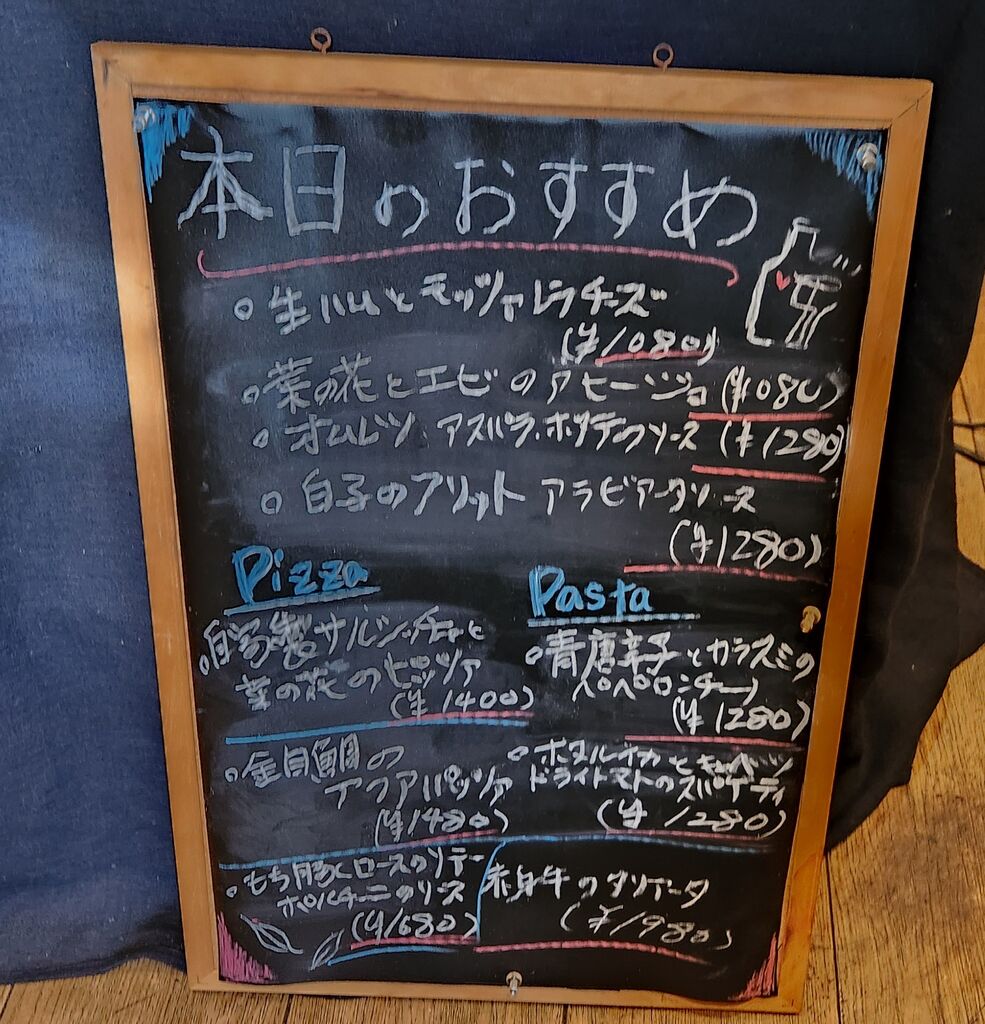 本日のおすすめ
○ 生ハムとモッツァレラチーズ
(¥1080)
○ 菜の花とエビのアヒージョ (¥1080)
○ オムレツ、アスパラ、ホタテのソース (¥1280)
○ 白子のフリット アラビアータソース
(¥1280)
Pizza
○自家製サルシッチャと
菜の花のピッツァ
(¥1400)
○金目鯛の
アクアパッツァ
(¥1480)
○もち豚ロースのソテー
ポルチーニのソース
(¥1680)
Pasta
○青唐辛子とカラスミの
ペペロンチーノ
(¥1280)
○ホタルイカとキャベツ
ドライトマトのスパゲティ
(¥1280)
赤身牛のタリアータ
(¥1980)